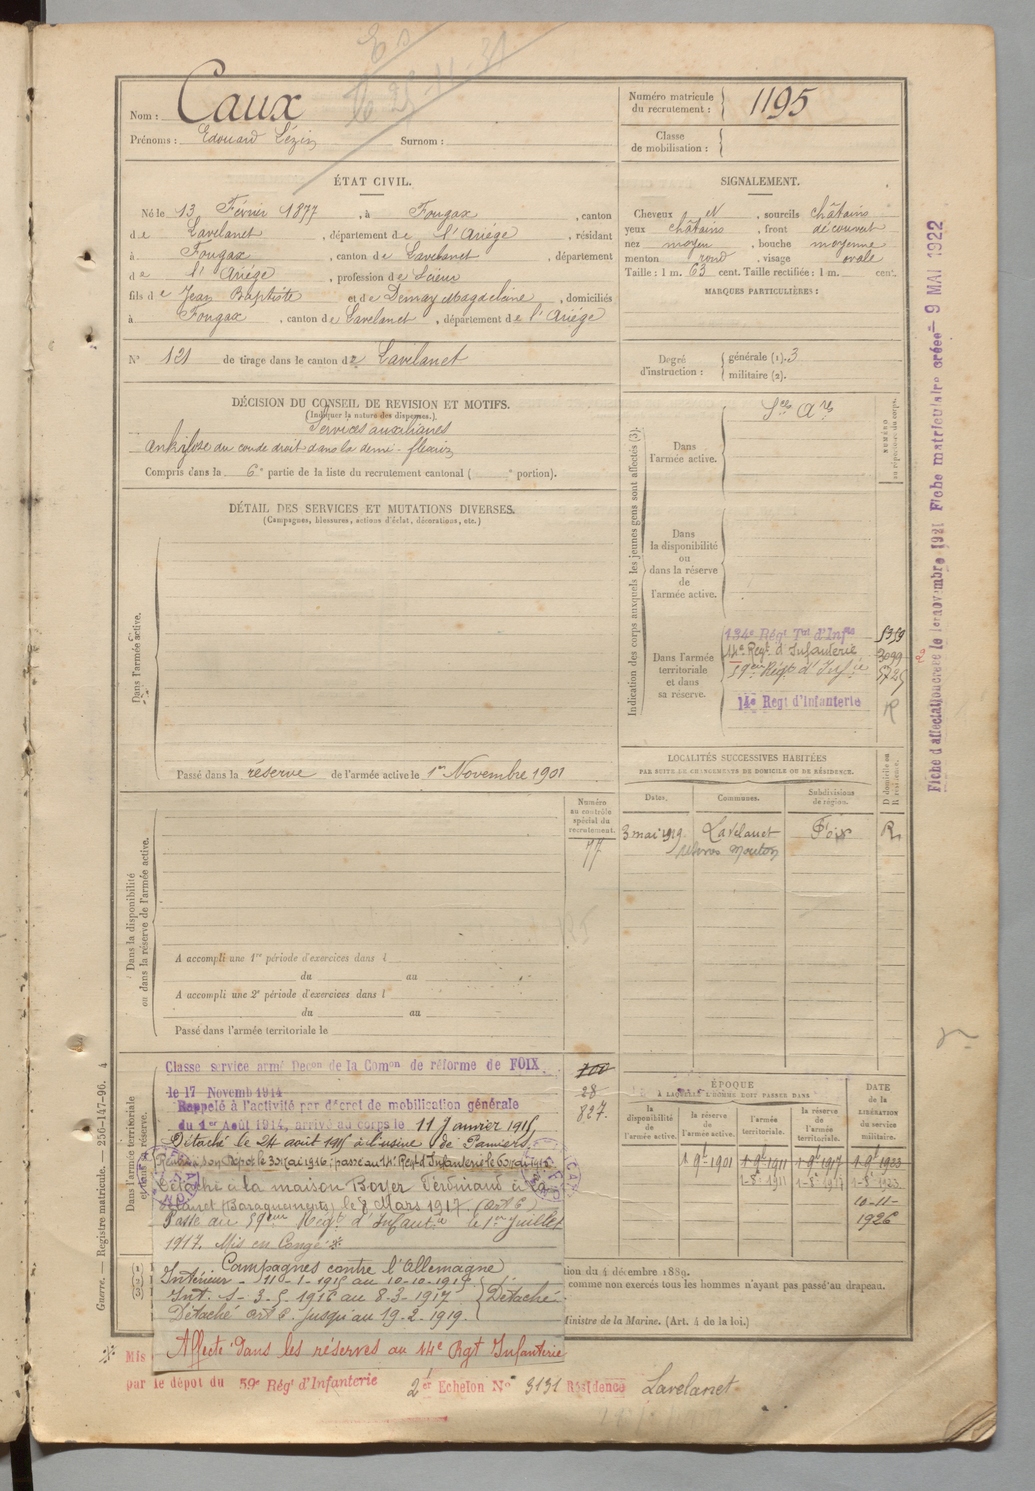 Nom : Caux
Prénoms : Edouard Lézin Surnom :
Numéro matricule du recrutement : 1195
Classe de mobilisation :
ÉTAT CIVIL.
Né le 13 Février 1877, à Fougax, canton
de Lavelanet, département de l'Ariège, résidant
à Fougax, canton de Lavelanet, département
de l'Ariège, profession de Scieur
fils de Jean Baptiste et de Demay Magdelaine, domiciliés
à Fougax, canton de Lavelanet, département de l'Ariège
N° 121 de tirage dans le canton de Lavelanet
SIGNALEMENT.
Cheveux et, sourcils châtains
yeux châtains, front découvert
nez moyen, bouche moyenne
menton rond, visage ovale
Taille : 1 m. 63 cent. Taille rectifiée : 1 m. cent.
MARQUES PARTICULIÈRES :
Degré d'instruction : générale (1). 3
militaire (2).
DÉCISION DU CONSEIL DE REVISION ET MOTIFS.
(Indiquer la nature des dispenses.)
Services auxiliaires
Ankilose du coude droit dans la demi-flexion
Compris dans la 6e partie de la liste du recrutement cantonal ( e portion).
DÉTAIL DES SERVICES ET MUTATIONS DIVERSES.
(Campagnes, blessures, actions d'éclat, décorations, etc.)
Dans l'armée active.
Passé dans la réserve de l'armée active le 1er Novembre 1901
Indication des corps auxquels les jeunes gens sont affectés (3).
NUMÉRO au répertoire du corps.
Dans l'armée active. Ses Ares
Dans la disponibilité ou dans la réserve de l'armée active.
Dans l'armée territoriale et dans sa réserve.
134e Régt Tal d'Infie 5359
14e Regt d'Infanterie 3099
59eme Régt d'Infie 5725
14e Regt d'Infanterie R
LOCALITÉS SUCCESSIVES HABITÉES
PAR SUITE DE CHANGEMENTS DE DOMICILE OU DE RÉSIDENCE.
Dates. Communes. Subdivisions de région. D domicile ou R résidence.
3 mai 1919 Lavelanet Foix R
Numéro au contrôle spécial du recrutement.
77
Dans la disponibilité ou dans la réserve de l'armée active.
A accompli une 1re période d'exercices dans l
du au
A accompli une 2e période d'exercices dans l
du au
Passé dans l'armée territoriale le
Dans l'armée territoriale et dans sa réserve.
Classe service armé Decon de la Comon de réforme de FOIX
le 17 Novemb 1914
Rappelé à l'activité par décret de mobilisation générale
du 1er Août 1914, arrivé au corps le 11 Janvier 1915
Détaché le 24 août 1915 à l'usine de Pamiers
Détaché à la maison Boyer Ferdinand à
le 8 Mars 1917. (Art 6)
Passé au 59eme Régt d'Infantie le 1er Juillet
1917. Mis en Congé
Campagnes contre l'Allemagne
Intérieur - 11-1-1915 au 10-10-1915
Int. S - 3.5 1916 au 8-3-1917 Détaché
Détaché Art 6. jusqu'au 19-2-1919.
Affecté dans les réserves au 14e Rgt Infanterie
28
827
ÉPOQUE
À LAQUELLE L'HOMME DOIT PASSER DANS
la disponibilité de l'armée active. la réserve de l'armée active. l'armée territoriale. la réserve de l'armée territoriale. DATE de la LIBÉRATION du service militaire.
1 9e 1901 1 9e 1911 1 9e 1917 1 9e 1923
1-8e 1911 1-8e 1917 1-8e 1923
10-11-1926
tion du 4 décembre 1889.
comme non exercés tous les hommes n'ayant pas passé au drapeau.
Ministre de la Marine. (Art. 4 de la loi.)
Mis
par le dépôt du 59e Régt d'Infanterie 2er Echelon N° 3131 Résidence Lavelanet
Guerre. — Registre matricule. — 256-147-96. 4
Fiche d'affectation créée le 1er novembre 1921 Fiche matriculaire créée - 9 MAI 1922